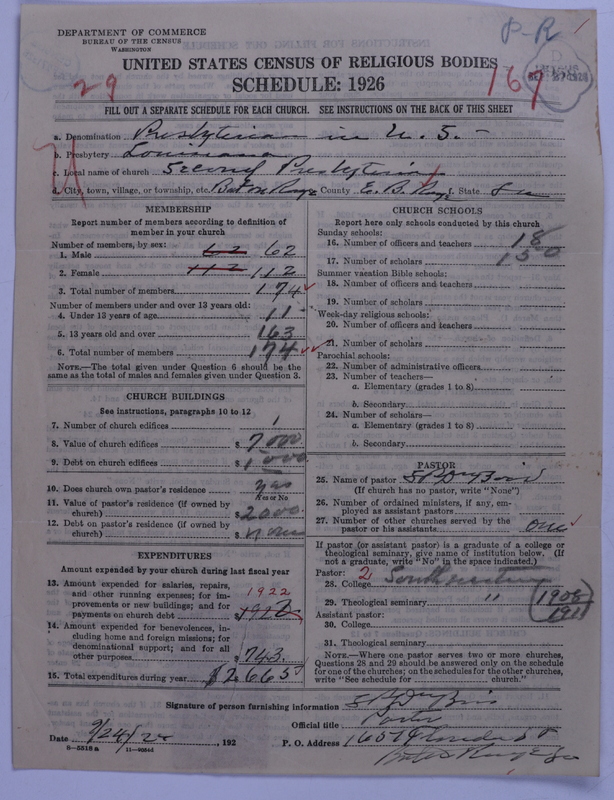 DEPARTMENT OF COMMERCE
BUREAU OF THE CENSUS
WASHINGTON
P-R
UNITED STATES CENSUS OF RELIGIOUS BODIES
SCHEDULE: 1926
29
167
FILL OUT A SEPARATE SCHEDULE FOR EACH CHURCH. SEE INSTRUCTIONS ON THE BACK OF THIS SHEET
a. Denomination Presbyterian in U. S.
b. Presbytery Louisiana
c. Local name of church Second Presbyterian
d. City, town, village, or township, etc. Baton Rouge County E. B. Rouge f. State La
MEMBERSHIP
Report number of members according to definition of member in your church
Number of members, by sex:
1. Male 62 62
2. Female 112 112
3. Total number of members 174
Number of members under and over 13 years old:
4. Under 13 years of age 11
5. 13 years old and over 163
6. Total number of members 174
NOTE.—The total given under Question 6 should be the same as the total of males and females given under Question 3.
CHURCH BUILDINGS
See instructions, paragraphs 10 to 12
7. Number of church edifices 1
8. Value of church edifices $ 7000
9. Debt on church edifices $
10. Does church own pastor's residence yes
Yes or No
11. Value of pastor's residence (if owned by church) $ 2000
12. Debt on pastor's residence (if owned by church) $ none
EXPENDITURES
Amount expended by your church during last fiscal year
13. Amount expended for salaries, repairs, and other running expenses; for improvements or new buildings; and for payments on church debt 1922
14. Amount expended for benevolences, including home and foreign missions; for denominational support; and for all other purposes $ 743.
15. Total expenditures during year $2665
CHURCH SCHOOLS
Report here only schools conducted by this church
Sunday schools:
16. Number of officers and teachers 18
17. Number of scholars 150
Summer vacation Bible schools:
18. Number of officers and teachers
19. Number of scholars
Week-day religious schools:
20. Number of officers and teachers
21. Number of scholars
Parochial schools:
22. Number of administrative officers
23. Number of teachers—
a. Elementary (grades 1 to 8)
b. Secondary
24. Number of scholars—
a. Elementary (grades 1 to 8)
b. Secondary
PASTOR
25. Name of pastor
(If church has no pastor, write "None")
26. Number of ordained ministers, if any, employed as assistant pastors
27. Number of other churches served by the pastor or his assistants one
If pastor (or assistant pastor) is a graduate of a college or theological seminary, give name of institution below. (If not a graduate, write "No" in the space indicated.)
Pastor: 2
28. College Southwestern
29. Theological seminary " 1908 1911
Assistant pastor:
30. College
31. Theological seminary
NOTE.—Where one pastor serves two or more churches, Questions 28 and 29 should be answered only on the schedule for one of the churches; on the schedules for the other churches, write "See schedule for church."
Signature of person furnishing information
Official title Pastor
Date 9/24/26, 192 P. O. Address 1657 Florida St
Baton Rouge La
8-5518a 11-9054d